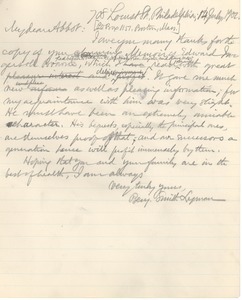 708 Locust St. Philadelphia, 14 July 1902.
My dear Abbot:
(P.O. Box 1157, Boston, Mass.)
Accept my many thanks for the
copy of your Memoir of Edward
which I read with great
pleasure
It gave me much
new as well as pleasing information; for
my acquaintance with him was very slight.
He must have been an extremely amiable
character. His reports, especially the principal ones,
are themselves proof of that; and our successors a
generation hence will profit immensely by them.
Hoping that you and your family are in the
best of health, I am always
Very truly yours,
Benj. Smith Lyman